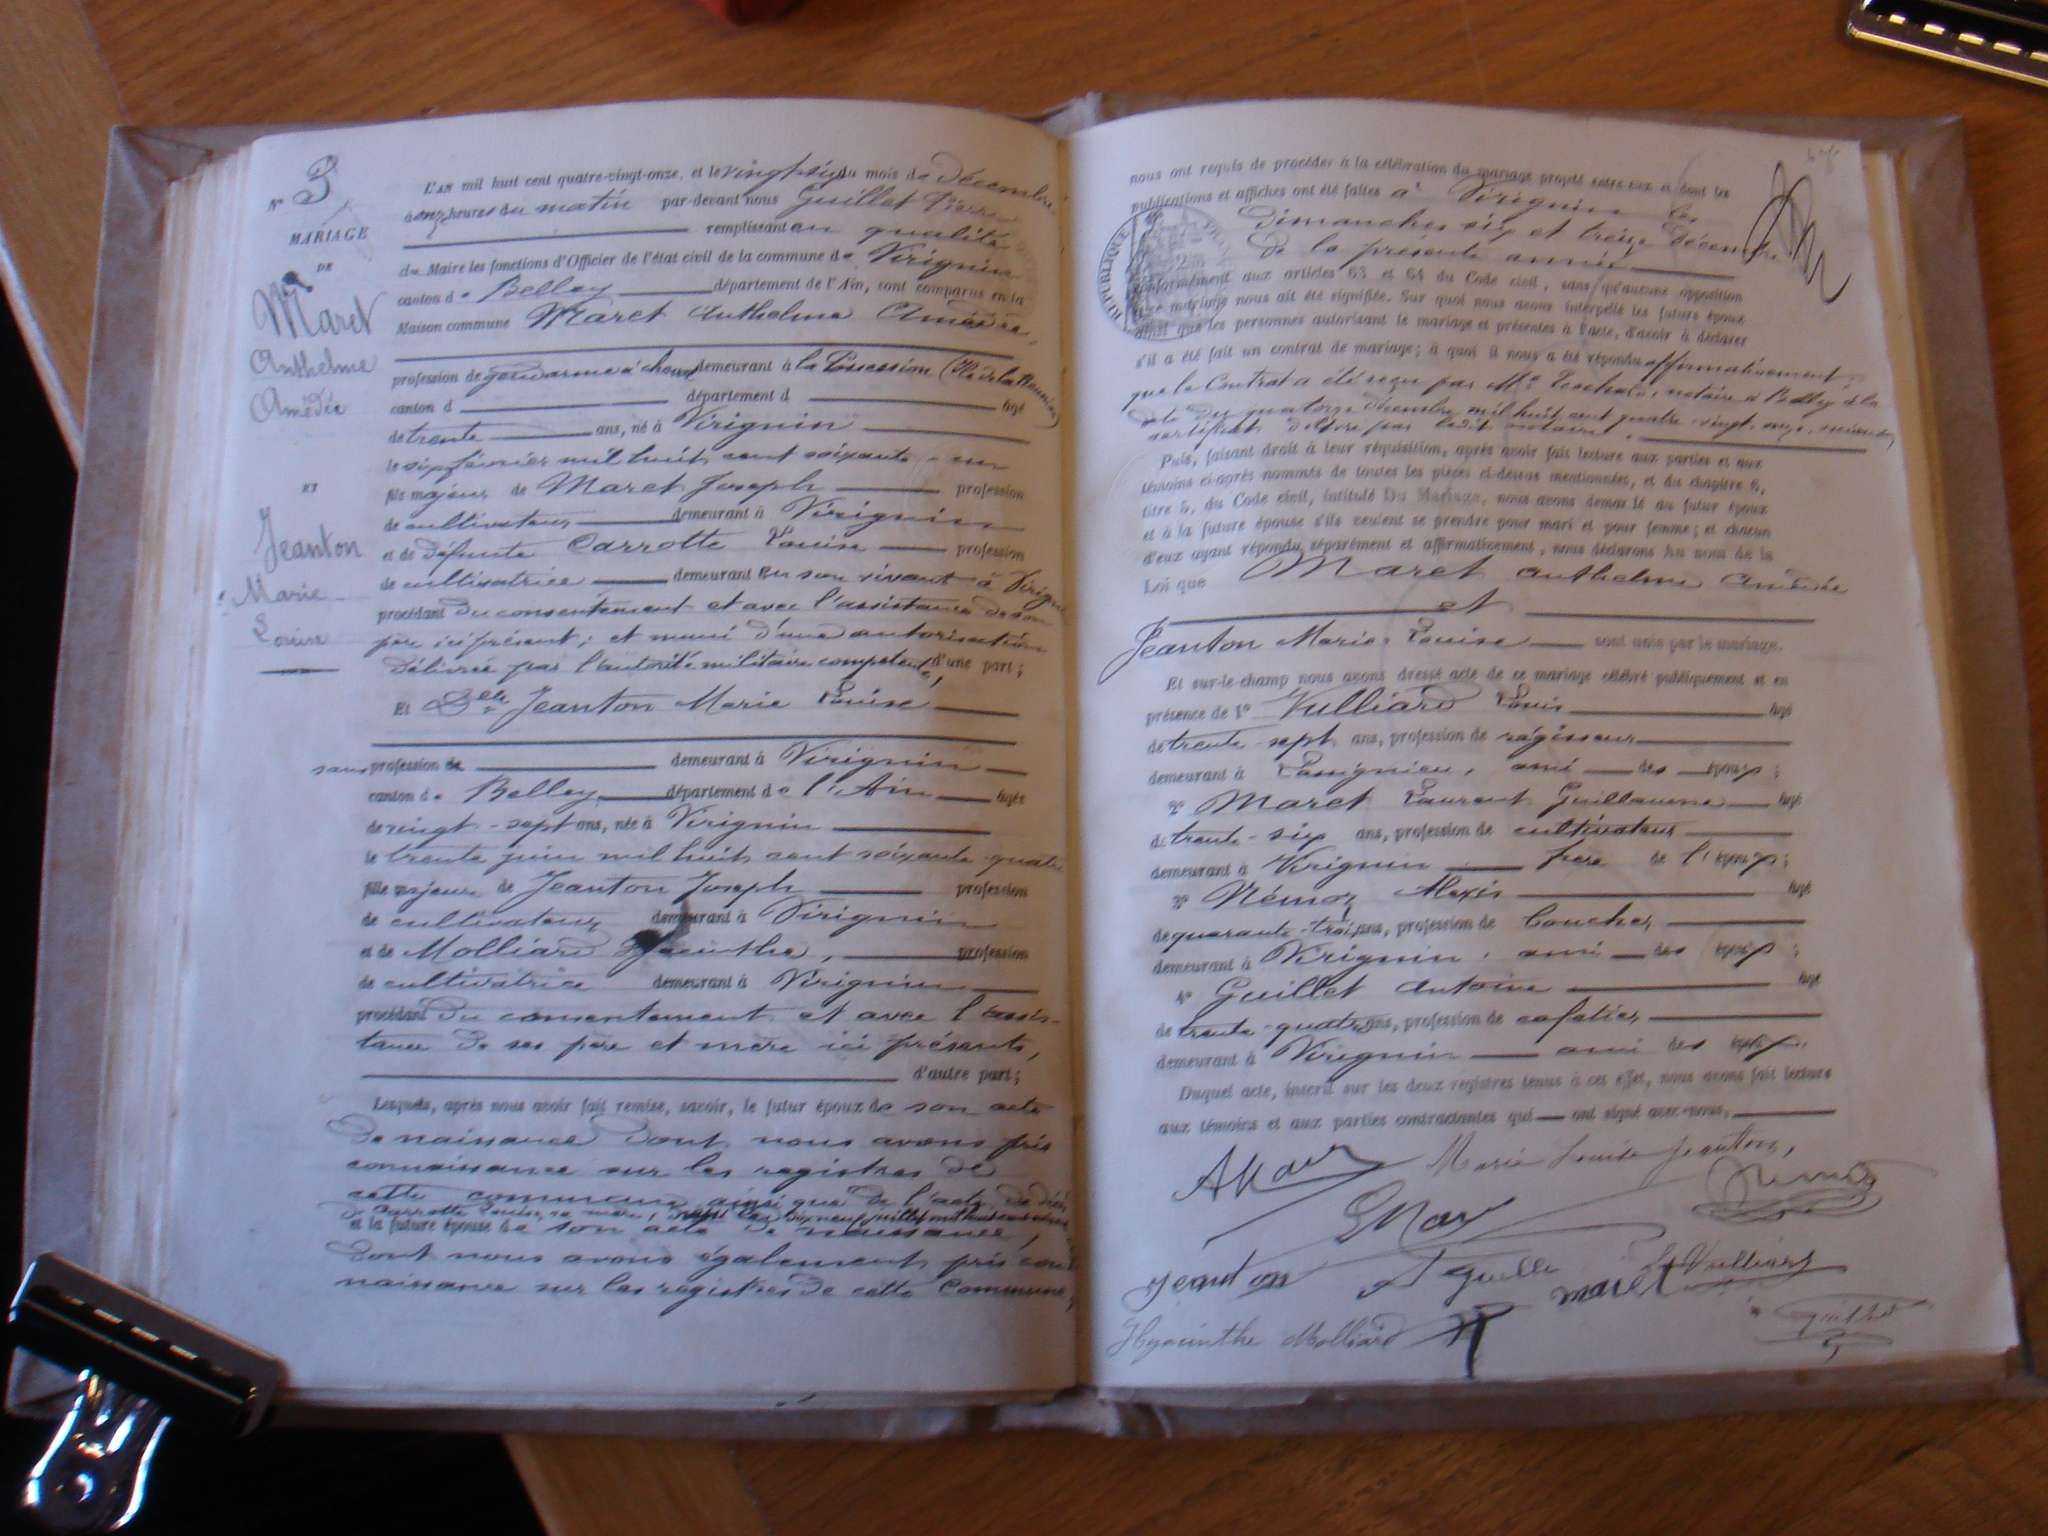 N° 3
MARIAGE
DE
Maret
Anthelme
Amédée
ET
Jeanton
Marie
Louise
L'AN mil huit cent quatre-vingt-onze, et le vingt-six du mois de décembre
à onze heures du matin par-devant nous Guillet Pierre
remplissant en qualité
du Maire les fonctions d'Officier de l'état civil de la commune de Virignin
canton de Belley département de l'Ain, sont comparus en la
Maison commune Maret Anthelme Amédée,
profession de gendarme à cheval demeurant à la Possession (Ile de la Réunion)
canton d département d âgé
de trente ans, né à Virignin
le six février mil huit cent soixante-un
fils majeur de Maret Joseph profession
de cultivateur demeurant à Virignin
et de défunte Carrotte Louise profession
de cultivatrice demeurant en son vivant à Virignin
procédant du consentement et avec l'assistance de son
père ici présent; et muni d'une autorisation
délivrée par l'autorité militaire compétente, d'une part;
Et Delle Jeanton Marie Louise
sans profession de demeurant à Virignin
canton de Belley département de l'Ain âgée
de vingt-sept ans, née à Virignin
le trente juin mil huit cent soixante-quatre
fille majeure de Jeanton Joseph profession
de cultivateur demeurant à Virignin
et de Molliard Hyacinthe, profession
de cultivatrice demeurant à Virignin
procédant du consentement et avec l'assis-
tance de ses père et mère ici présents,
d'autre part;
Lesquels, après nous avoir fait remise, savoir, le futur époux de son acte
de naissance dont nous avons pris
connaissance sur les registres de
cette commune ainsi que de l'acte de décès
de Carrotte Louise, sa mère, dix neuf juillet mil huit cent
et la future épouse de son acte de naissance,
dont nous avons également pris con-
naissance sur les registres de cette Commune,
nous ont requis de procéder à la célébration du mariage projeté entre eux et dont les
publications et affiches ont été faites à Virignin les
dimanches six et treize décembre
de la présente année
conformément aux articles 63 et 64 du Code civil, sans qu'aucune opposition
audit mariage nous ait été signifiée. Sur quoi nous avons interpellé les futurs époux
ainsi que les personnes autorisant le mariage et présentes à l'acte, d'avoir à déclarer
s'il a été fait un contrat de mariage; à quoi il nous a été répondu affirmativement
que le Contrat a été reçu par Me notaire à Belley à la
date du quatorze décembre mil huit cent quatre-vingt-onze, suivant
certificat délivré par ledit notaire.
Puis, faisant droit à leur réquisition, après avoir fait lecture aux parties et aux
témoins ci-après nommés de toutes les pièces ci-dessus mentionnées, et du chapitre 6,
titre 5, du Code civil, intitulé Du Mariage, nous avons demandé au futur époux
et à la future épouse s'ils veulent se prendre pour mari et pour femme; et chacun
d'eux ayant répondu séparément et affirmativement, nous déclarons au nom de la
Loi que Maret Anthelme Amédée
et
Jeanton Marie Louise sont unis par le mariage.
Et sur-le-champ nous avons dressé acte de ce mariage célébré publiquement et en
présence de 1° Vulliard Louis âgé
de trente-sept ans, profession de régisseur
demeurant à ami des époux;
2° Maret Laurent Guillaume âgé
de trente-six ans, profession de cultivateur
demeurant à Virignin frère de l'époux;
3° Némoz Alexis âgé
de quarante-trois ans, profession de boucher
demeurant à Virignin, ami des époux;
4° Guillet Antoine âgé
de trente-quatre ans, profession de cafetier
demeurant à Virignin ami des époux.
Duquel acte, inscrit sur les deux registres tenus à cet effet, nous avons fait lecture
aux témoins et aux parties contractantes qui ont signé avec nous.
AMaret Marie Louise Jeanton,
Jeanton Vulliard
Maret
Hyacinthe Molliard